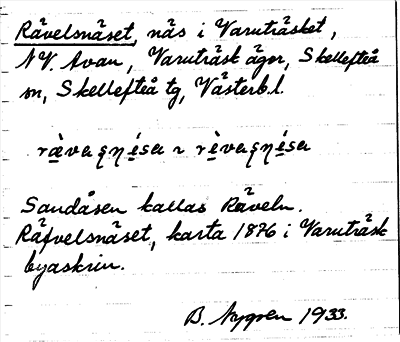 Rävelsnäset, näs i Varuträsket,
NV. Avan, Varuträsk ägor, Skellefteå
sn, Skellefteå tg, Västerb.l.
Sandåsen kallas Räveln.
Räfvelsnäset, karta 1876 i Varuträsk
byaskrin.
B. Nygren 1933.